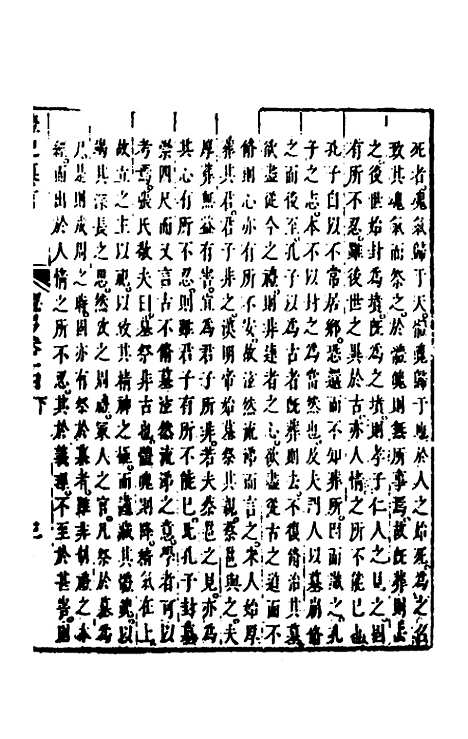 死者魂氣歸于天體魄歸于地於人之始死爲之
致其魂氣而祭之於體魄則無所事焉故既葬則止
之後世始封爲墳既爲之墳則孝子仁人之見之固
有所不忍雖後世之異於古亦人情之所不能已也
孔子自以不常居鄉恐還而不知葬所因而識之孔
子之志本不以封之爲當然也及夫門人以墓崩脩
之而後至孔子以古者既葬則去不復脩治其墓
欲盡從今之禮則非達者之心欲盡從古之道而不
脩則心亦有所不安故泫然流涕而言之宋人始厚
葬其君君子非之漢明帝始墓祭其親蔡邕與之夫
厚葬無益有害宜爲君子所非若夫蔡邕之見亦爲
其心有所不忍則雖君子有所不能已也孔子封墓
崇四尺而又言古不脩墓泫然流涕之意學者可以
考焉張氏敬夫曰墓祭非古也體魄則降精氣在上
故立之主以祀以致其精神之極而謹藏其體以
竭其深長之思然攷之周禮冢人之官凡祭於墓爲
尸是則成周之時固亦有祭於墓者雖非制禮之本
經而出於人情之所不忍其於義理不至於甚害則